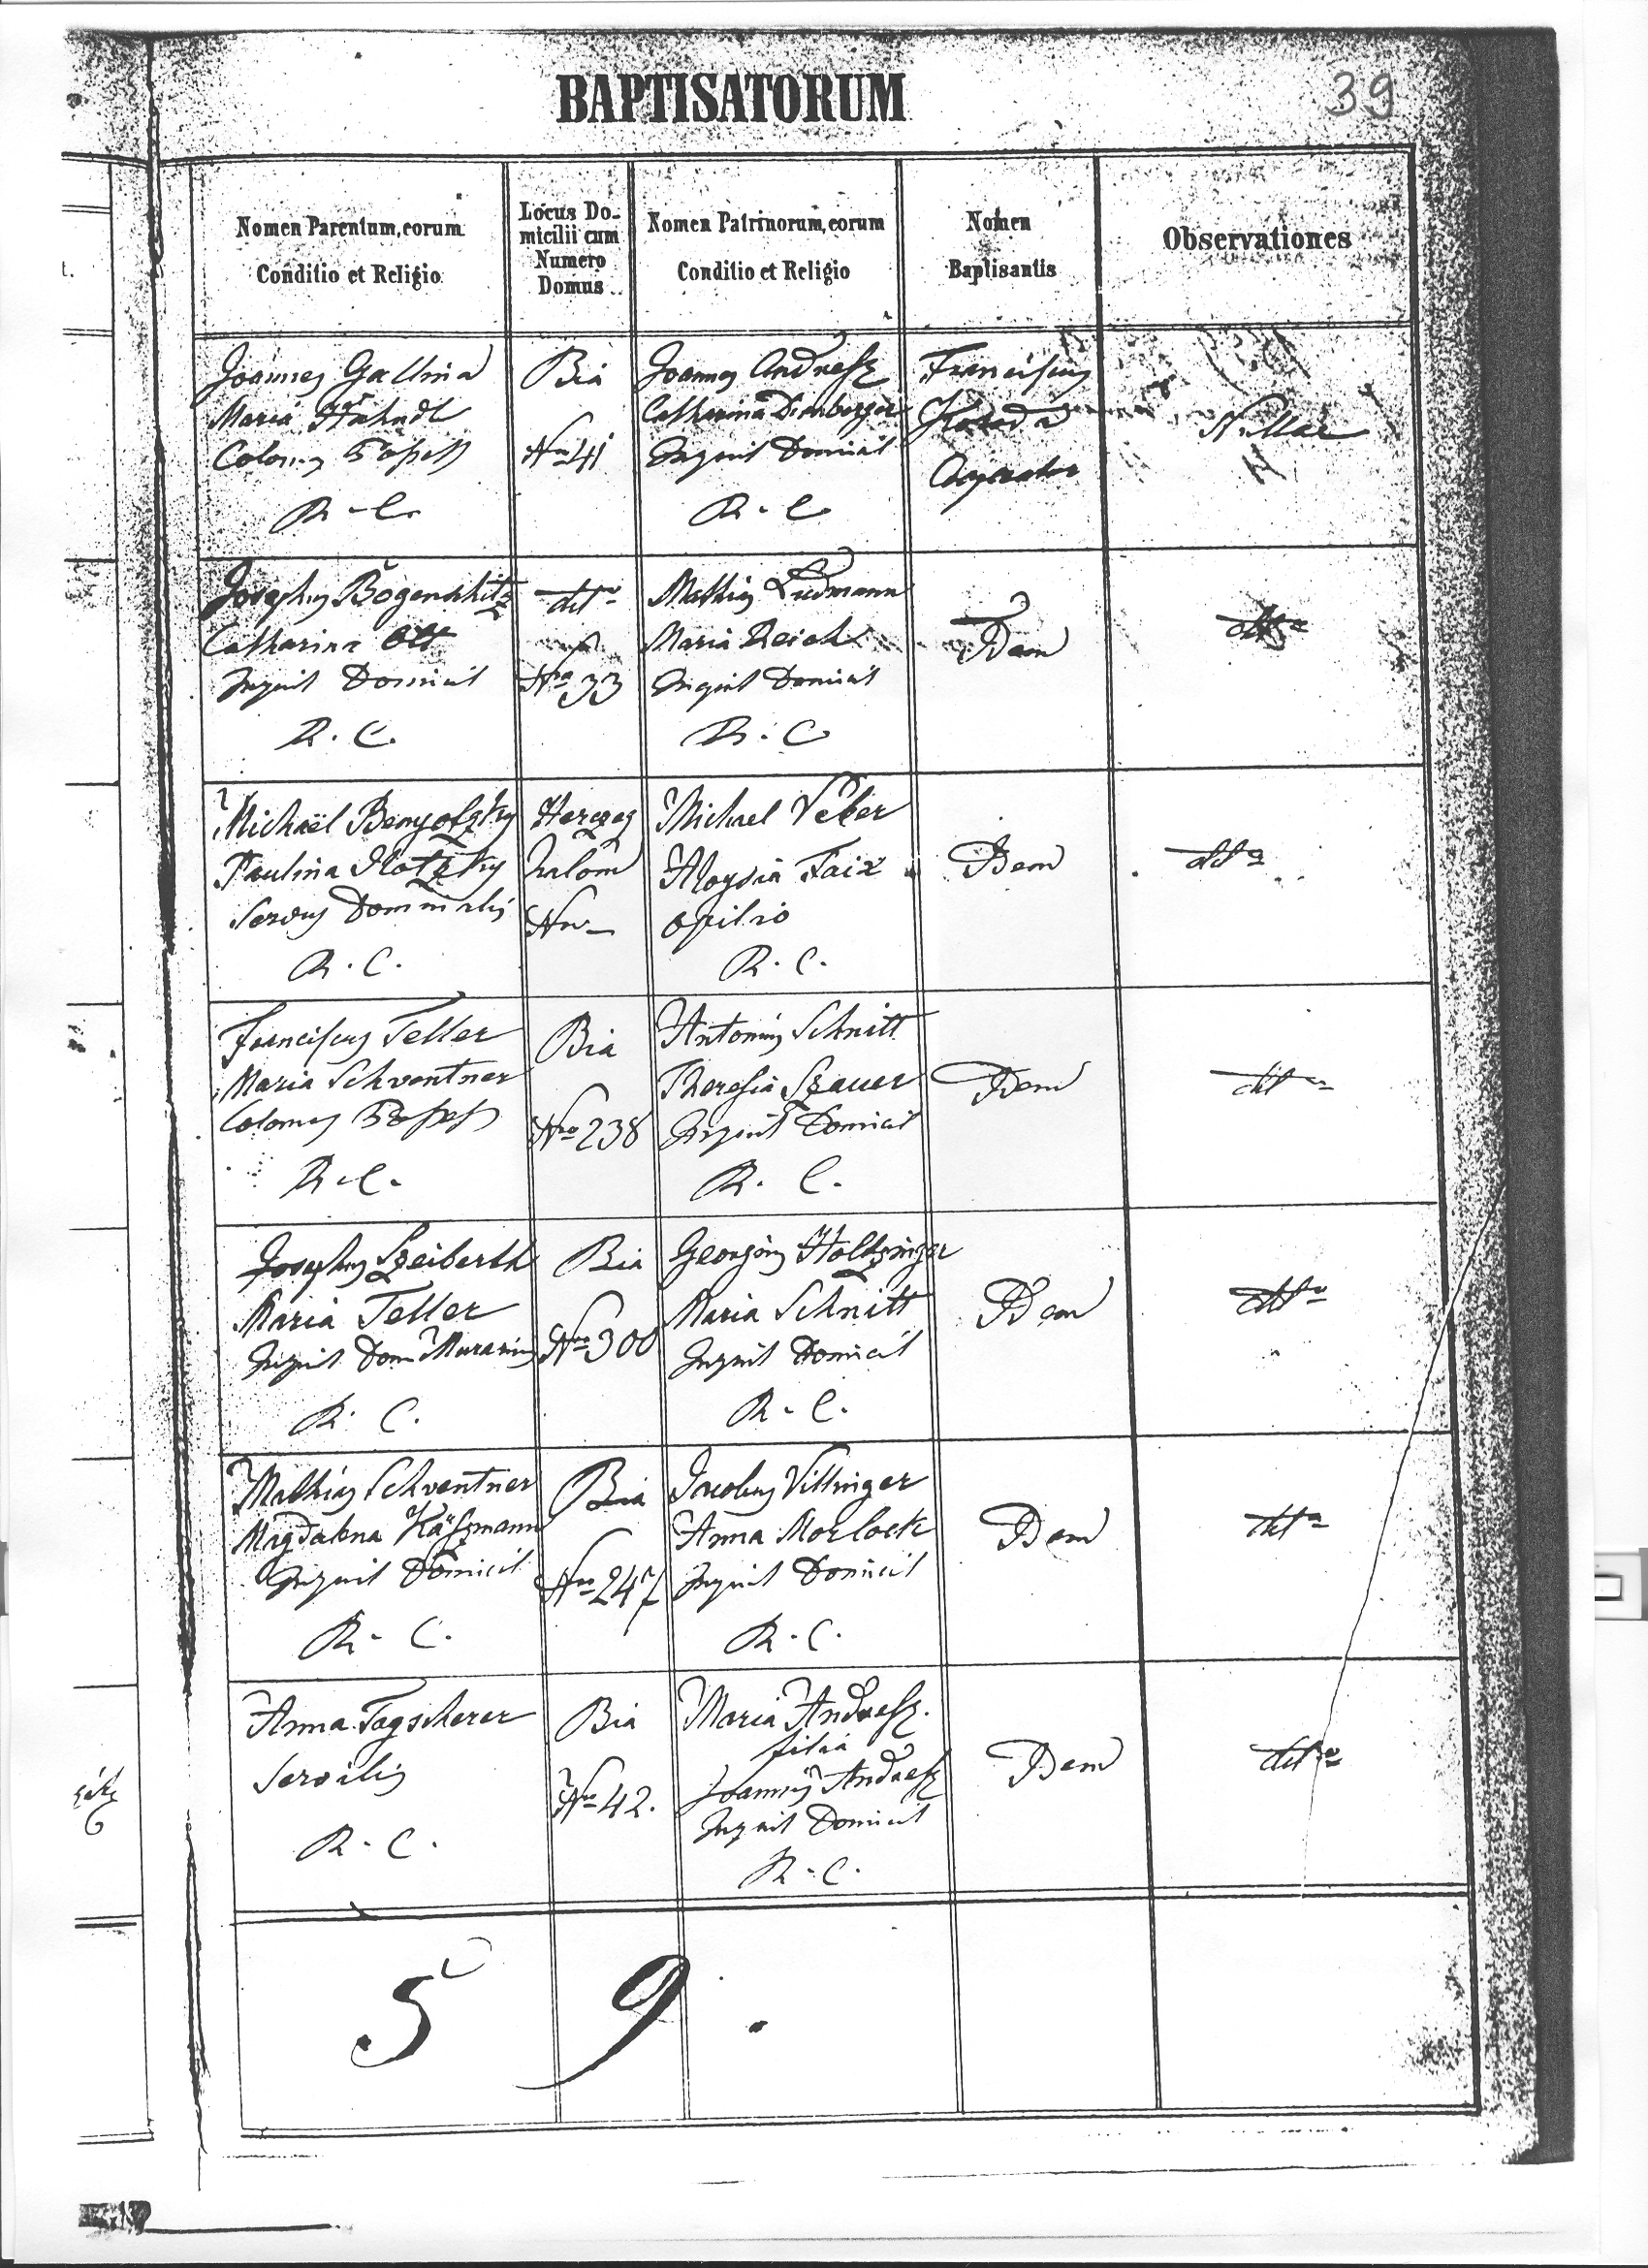 BAPTISATORUM
39
Nomen Parentum, eorum
Conditio et Religio
Locus Do-
micilii cum
Numero
Domus
Nomen Patrinorum, eorum
Conditio et Religio
Nomen
Baptisantis
Observationes
Joannes Gallina
Maria
Colonus
R. C.
Bia
Nro 41
Joannes Andresz
Catharina
Inquil Domicil
R. C.
Franciscus
Nullae
Josephus Bögenschitz
Catharina Olt
Inquil Domicil
R. C.
dtto
Nro 33
Mathias Ludmann
Maria Reich
Inquil Domicil
R. C.
Idem
dtto
Michaël Benyofzky
Paulina Klotzky
Servus Dominalis
R. C.
Herczeg
halom
Nro
Michael Veber
Aloysia Faix
opilio
R. C.
Idem
dtto
Franciscus Teller
Maria Schventner
Colonus
R. C.
Bia
Nro 238
Antonius Schnitt
Theresia Szauer
Inquil Domicil
R. C.
Idem
dtto
Josephus Szeiberth
Maria Teller
Inquil Dom Murarius
R. C.
Bia
Nro 300
Georgius Holtzinger
Maria Schnitt
Inquil Domicil
R. C.
Idem
dtto
Mathias Schventner
Magdalena Käszmann
Inquil Domicil
R. C.
Bia
Nro 247
Jacobus Villinger
Anna Morlock
Inquil Domicil
R. C.
Idem
dtto
Anna Tagscherer
Servilis
R. C.
Bia
Nro 42.
Maria Andresz.
filia
Joannis Andresz
Inquil Domicil
R. C.
Idem
dtto
5 9.